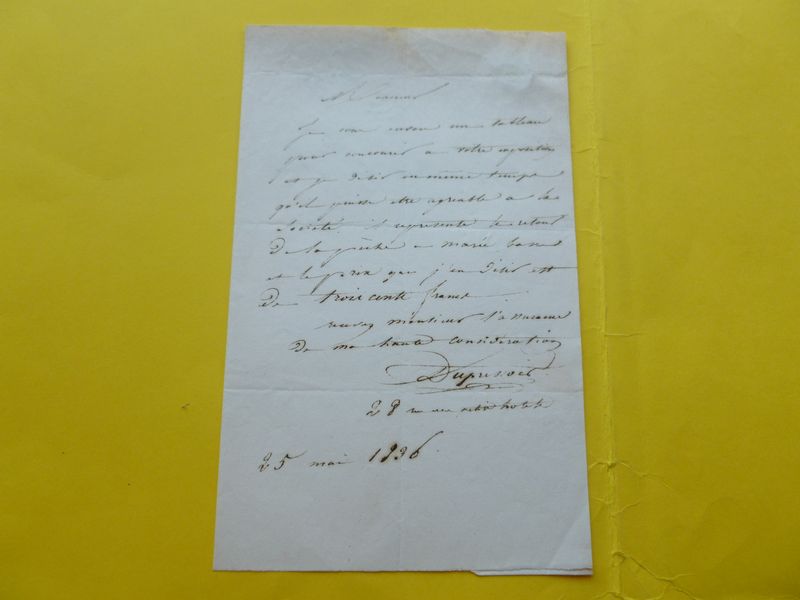 Monsieur
Je vous envoie un tableau
pour concourir a votre exposition
et je désir en même temps
qu'il puisse etre agreable a la
société. il represente le retour
De la pêche a marée basse
et le prix que j'en désir est
De trois cents francs.
recevez monsieur l'assurance
De ma haute consideration
Dupressoir
28 rue
25 mai 1836.